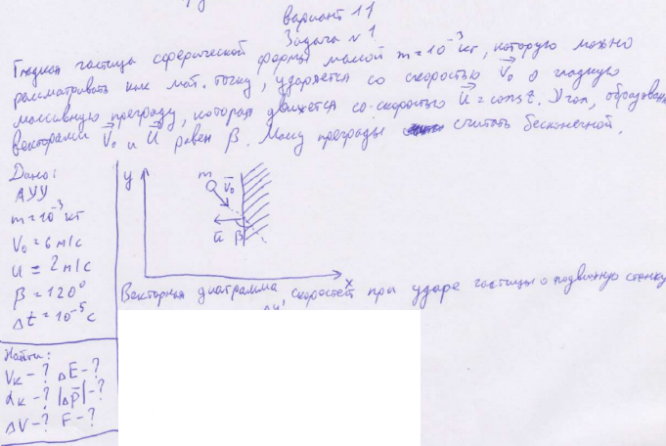 Вариант 11
Задача №1
Гладкая частица сферической формы массой m=10⁻³ кг, которую можно
рассматривать как мат. точку, ударяется со скоростью V₀ о гладкую
массивную преграду, которая движется со скоростью U = const. Угол, образован
векторами V₀ и U равен β. Массу преграды считать бесконечной.
Дано:
АУУ
m=10⁻³ кг
V₀=6 м/с
U=2 м/с
β=120°
Δt=10⁻⁵ с
Найти:
Vк-? ΔE-?
αк-? |Δp|-?
ΔV-? F-?
y
m
V₀
U
β
x
Векторная диаграмма скоростей при ударе частицы о подвижную стенку